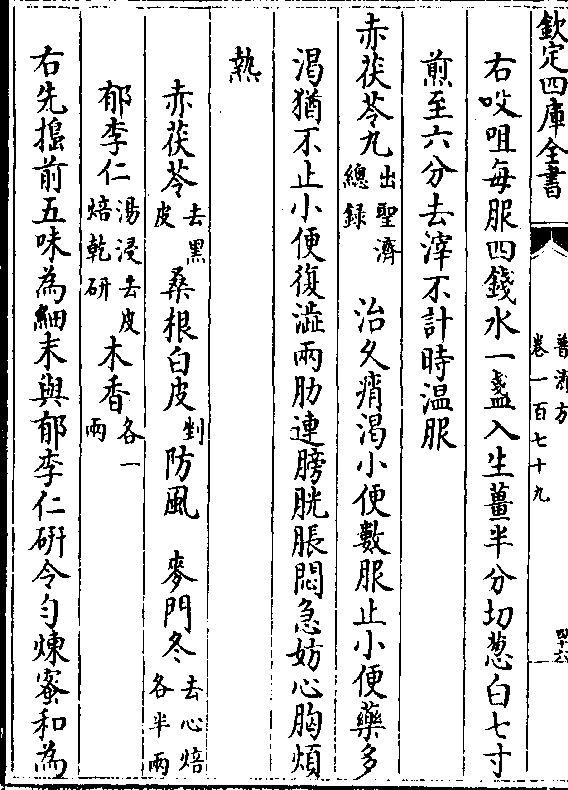 欽定四庫全書
普濟方
卷一百七十九
右㕮咀每服四錢水一盞入生薑半分切葱白七寸
煎至六分去滓不計時温服
赤茯苓丸出聖濟總録 治久痟渴小便數服止小便藥多
渴猶不止小便復澁兩肋連膀胱脹悶急妨心胸煩
熱
赤茯苓去黑皮 桑根白皮剉 防風 麥門冬去心焙各半兩
郁李仁湯浸去皮焙乾研 木香各一兩
右先搗前五味為細末與郁李仁研令匀煉蜜和為